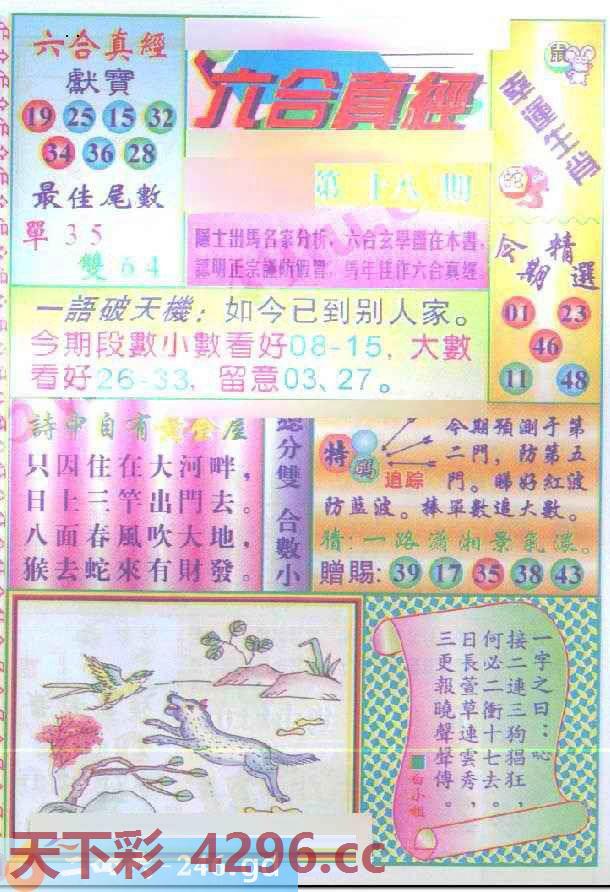 六合真經
獻寶
19 25 15 32
34 36 28
最佳尾數
單 35
雙 64
六合真經
第十八期
隱士出馬名家分析,六合玄學盡在本書,
認明正宗謹防假冒,馬年佳作六合真經。
鼠
幸運生肖
蛇
今期精選
01 23
46
11 48
一語破天機:如今已到别人家。
今期段數小數看好08-15,大數
看好26-33,留意03、27。
詩中自有黃金屋
只因住在大河畔,
日上三竿出門去。
八面春風吹大地,
猴去蛇來有財發。
總分雙 合數小
特碼
追踪
今期預測于第
二門,防第五
門。睇好紅波
防藍波。捧單數追大數。
猜:一路瀟湘景氣濃。
贈賜:39 17 35 38 43
一字之曰:吣
接二連三狗猖狂,
何必二衝十七去。
日長萱草連雲秀,
三更報曉聲聲傳。
白小姐
天下彩 4296.cc